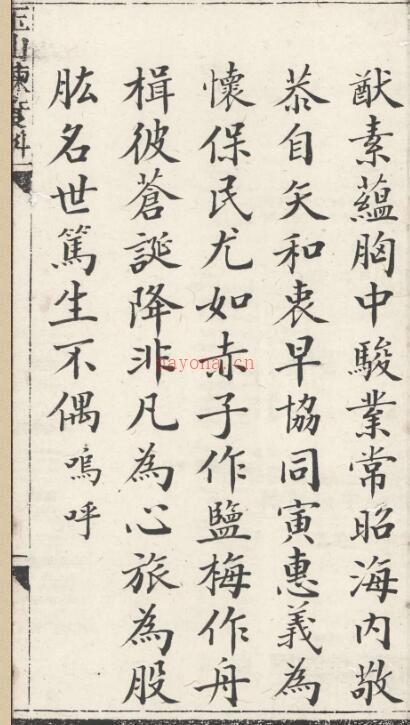 猷素蘊胸中駿業常昭海內敬
恭自矢和衷早協同寅惠義為
懷保民尤如赤子作鹽梅作舟
楫彼蒼誕降非凡為心旅為股
肱名世篤生不偶嗚呼
nayona.cn